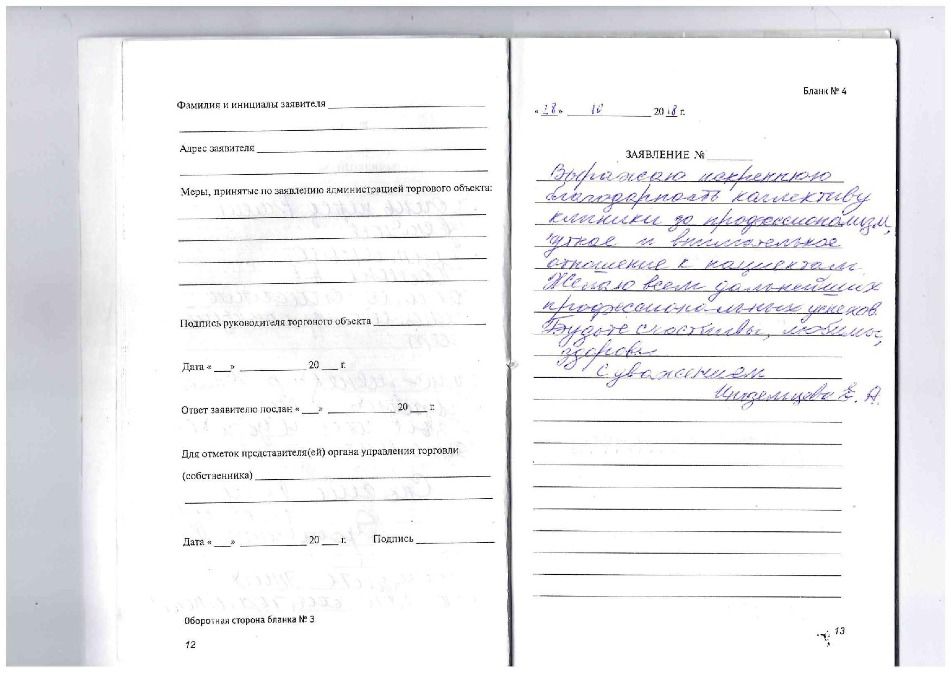 Фамилия и инициалы заявителя
Адрес заявителя
Меры, принятые по заявлению администрацией торгового объекта:
Подпись руководителя торгового объекта
Дата « » 20 г.
Ответ заявителю послан « » 20 г.
Для отметок представителя(ей) органа управления торговли
(собственника)
Дата « » 20 г. Подпись
Оборотная сторона бланка № 3
12
Бланк № 4
«28» 10 2018 г.
ЗАЯВЛЕНИЕ №
Выражаю искреннюю
благодарность коллективу
клиники за профессионализм,
чуткое и внимательное
отношение к пациентам.
Желаю всем дальнейших
профессиональных успехов.
Будьте счастливы, любимы,
здоровы
С уважением
Иноземцева Е. А.
13